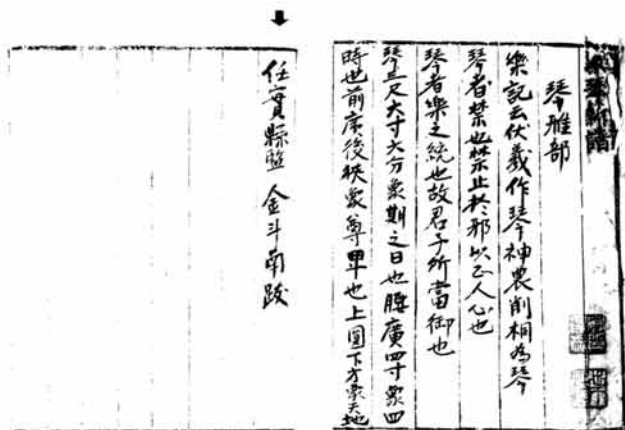 梁琴新譜
琴雅部
樂記云伏羲作琴神農削桐為琴
琴者禁也禁止於邪以正人心也
琴者樂之統也故君子所當御也
琴三尺六寸六分象期之日也腰廣四寸象四
時也前廣後狹象尊卑也上圓下方象天地
任實縣監 金斗南跋